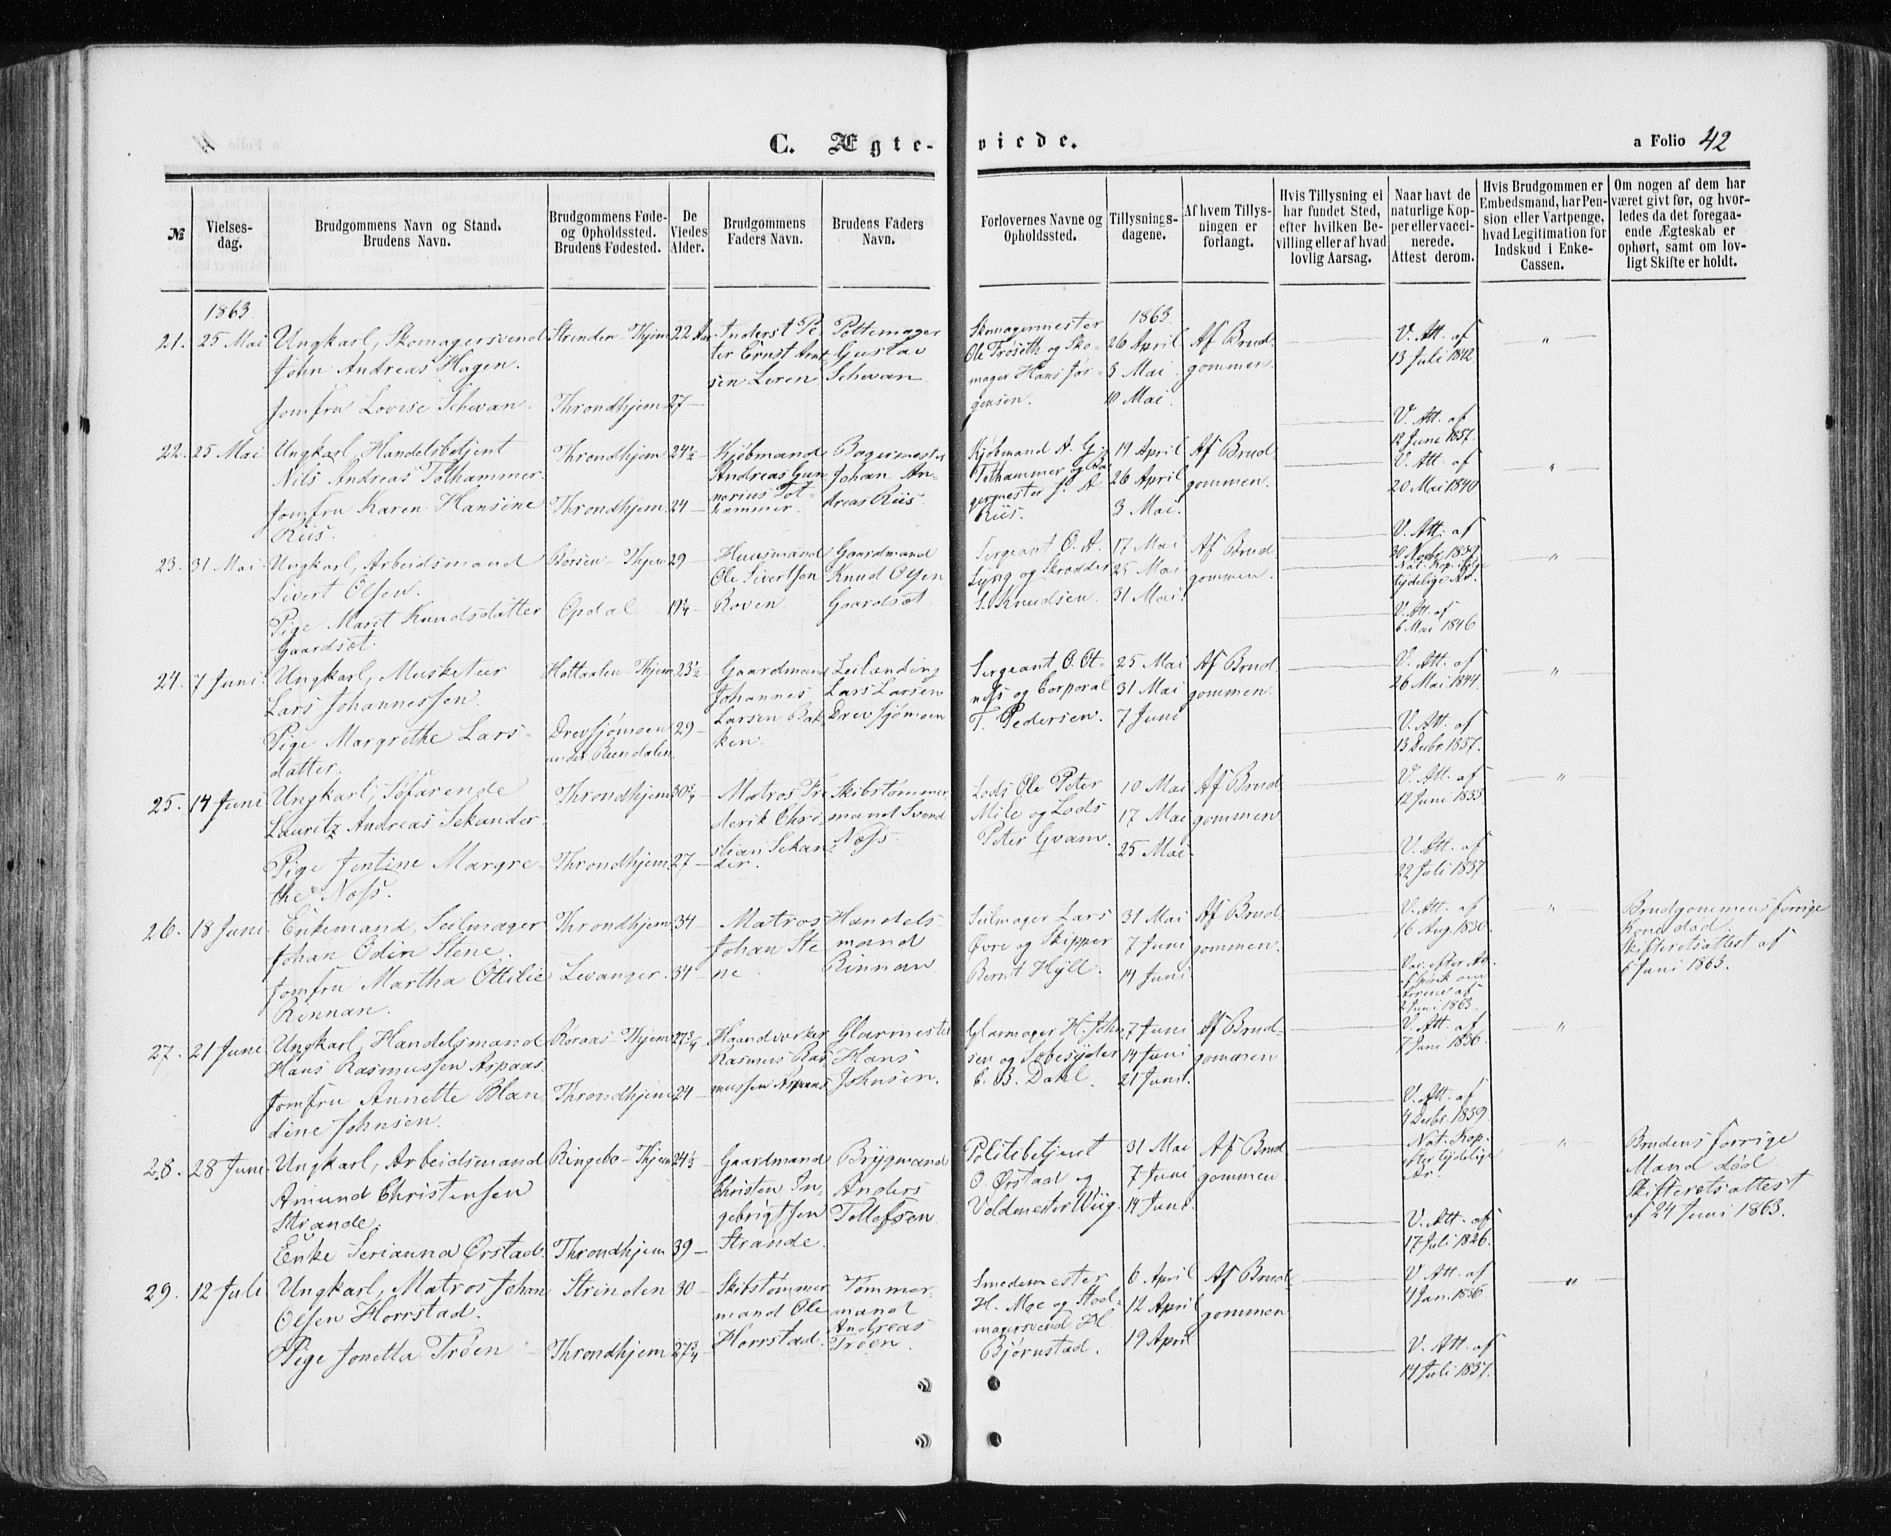 C. Ægteviede.
a Folio 42
№
Vielsesdag.
Brudgommens Navn og Stand.
Brudens Navn.
Brudgommens Føde-
og Opholdssted.
Brudens Fødested.
De
Viedes
Alder.
Brudgommens
Faders Navn.
Brudens Faders
Navn.
Forlovernes Navne og
Opholdssted.
Tillysnings-
dagene.
Af hvem Tillys-
ningen er
forlangt.
Hvis Tillysning ei
har fundet Sted,
efter hvilken Be-
villing eller af hvad
lovlig Aarsag.
Naar havt de
naturlige Kop-
per eller vacci-
nerede.
Attest derom.
Hvis Brudgommen er
Embedsmand, har Pen-
sion eller Vartpenge,
hvad Legitimation for
Indskud i Enke-
Cassen.
Om nogen af dem har
været givt før, og hvor-
ledes da det foregaa-
ende Ægteskab er
ophørt, samt om lov-
ligt Skifte er holdt.
1863.
21. 25 Mai
Ungkarl, Skomagersvend
John Andreas Hagen.
Jomfru Lovise Schwan.
Strinden - Thjem
Throndhjem
22 Aar
27 -
Anders Pe
ter Ernst Arnt
sen Leren
Pottemager
Gustav
Schwan
Skomagermester
Ole Trøseth og Sko-
mager Hans Jør-
gensen.
1863.
26 April
3 Mai
10 Mai.
Af Brud
gommen.
V. Att. af
13 Juli 1842
V. Att. af
12 Juni 1837.
22. 25 Mai
Ungkarl, Handelsbetjent
Nils Andreas Tolhammer.
Jomfru Karen Hansine
Riis.
Throndhjem
Throndhjem
24½ -
24 -
Kjøbmand
Andreas Gun
nerius Tol-
hammer.
Bagermester
Johan An-
dreas Riis
Kjøbmand A. G.
Tolhammer og Ba
germester J. A
Riis.
19 April
26 April
3 Mai.
Af Brud
gommen.
V. Att. af
20 Mai 1840
V. Att. af
30 Novbr 1839
23. 31 Mai
Ungkarl, Arbeidsmand
Sivert Olsen.
Pige Marit Knudsdatter
Gaardsøt.
Børsen - Thjem
Opdal
29 -
19¼
Huusmand
Ole Sivertsen
Roven.
Gaardmand
Knud Olsen
Gaardsøt
Sergeant O. A.
Lyng og Skrædder
S. Knudsen.
17 Mai
25 Mai
31 Mai
Af Brud
gommen.
Nat. Kop. ifølge
tydelige Ar.
V. Att. af
6 Mai 1846
24. 7 Juni.
Ungkarl, Musketur
Lars Johannessen.
Pige Margrethe Lars-
datter.
Holtaalen - Thjem
Drevsjømoen
under Rendalen
23½ -
29 -
Gaardmand
Johannes
Larsen Bak
ken.
Leilænding
Lars Larsen
Drevsjømoen
Sergeant O. Ot-
nes og Corporal
T. Pedersen.
25 Mai
31 Mai
7 Juni
Af Brud
gommen.
V. Att. af
26 Mai 1844.
V. Att. af
13 Decbr 1837.
25. 14 Juni
Ungkarl, Søfarende
Lauritz Andreas Sekander.
Pige Jentine Margre-
the Næss.
Throndhjem
Throndhjem
30¼
27 -
Matros Fre
derik Chri
stian Sekan
der.
Skibstømmer
mand Svend
Næss.
Lods Ole Peter
Mile og Lods
Peter Qvam.
10 Mai
17 Mai
25 Mai
Af Brud
gommen
V. Att. af
12 Juni 1833
V. Att. af
22 Juli 1837
26. 18 Juni
Enkemand, Seilmager
Johan Odin Stene.
Jomfru Martha Ottilie
Rinnan.
Throndhjem
Levanger.
34 -
34 -
Matros
Johan Ste
ne
Handels-
mand
Rinnan
Seilmager Lars
Øvre og Skipper
Bernt Hyll.
31 Mai
7 Juni
14 Juni
Af Brud
gommen.
V. Att. af
16 Aug 1830
2 Juni 1863.
Brudgommens forrige
Kone død.
Skifteretsattest af
6 Juni 1863.
27. 21 Juni
Ungkarl, Handelsmand
Hans Rasmussen Aspaas.
Jomfru Annette Blan
dine Johnsen.
Røraas - Thjem
Throndhjem
27¾
24 -
Haandverker
Rasmus Ras
mussen Aspaas
Glarmester
Hans
Johnsen.
Glarmager H. John
sen og Sæbesyder
E. B. Dahl.
7 Juni
14 Juni
21 Juni
Af Brud-
gommen
V. Att. af
7 Juni 1836.
V. Att. af
4 Decbr 1839
28. 28 Juni
Ungkarl, Arbeidsmand
Amund Christensen
Strande.
Enke Serianna Ørstad.
Ringebo - Thjem
Throndhjem
24½
39 -
Gaardmand
Christen In-
gebrigtsen
Strande.
Brygmand
Anders
Tollefsen
Politibetjent
O. Ørstad og
Voldmester Wiig.
31 Mai
7 Juni
14 Juni
Af Brud
gommen
Nat. Kop.
efter tydelige
Ar.
V. Att. af
17 Juli 1826.
Brudens forrige
Mand død
Skifteretsattest
af 24 Juni 1863.
29. 12 Juli
Ungkarl, Matros Johan
Olsen Horrstad.
Pige Jonetta Trøen
Strinden
Throndhjem
30 -
27¾
Skibstømmer
mand Ole
Horrstad.
Tømmer
mand
Andreas
Trøen.
Smedemester
H. Moe og Stoel-
magersvend H
Bjørnstad.
6 April
12 April
19 April
Af Brud
gommen
V. Att. af
4 Jan. 1836
V. Att. af
14 Juli 1837.